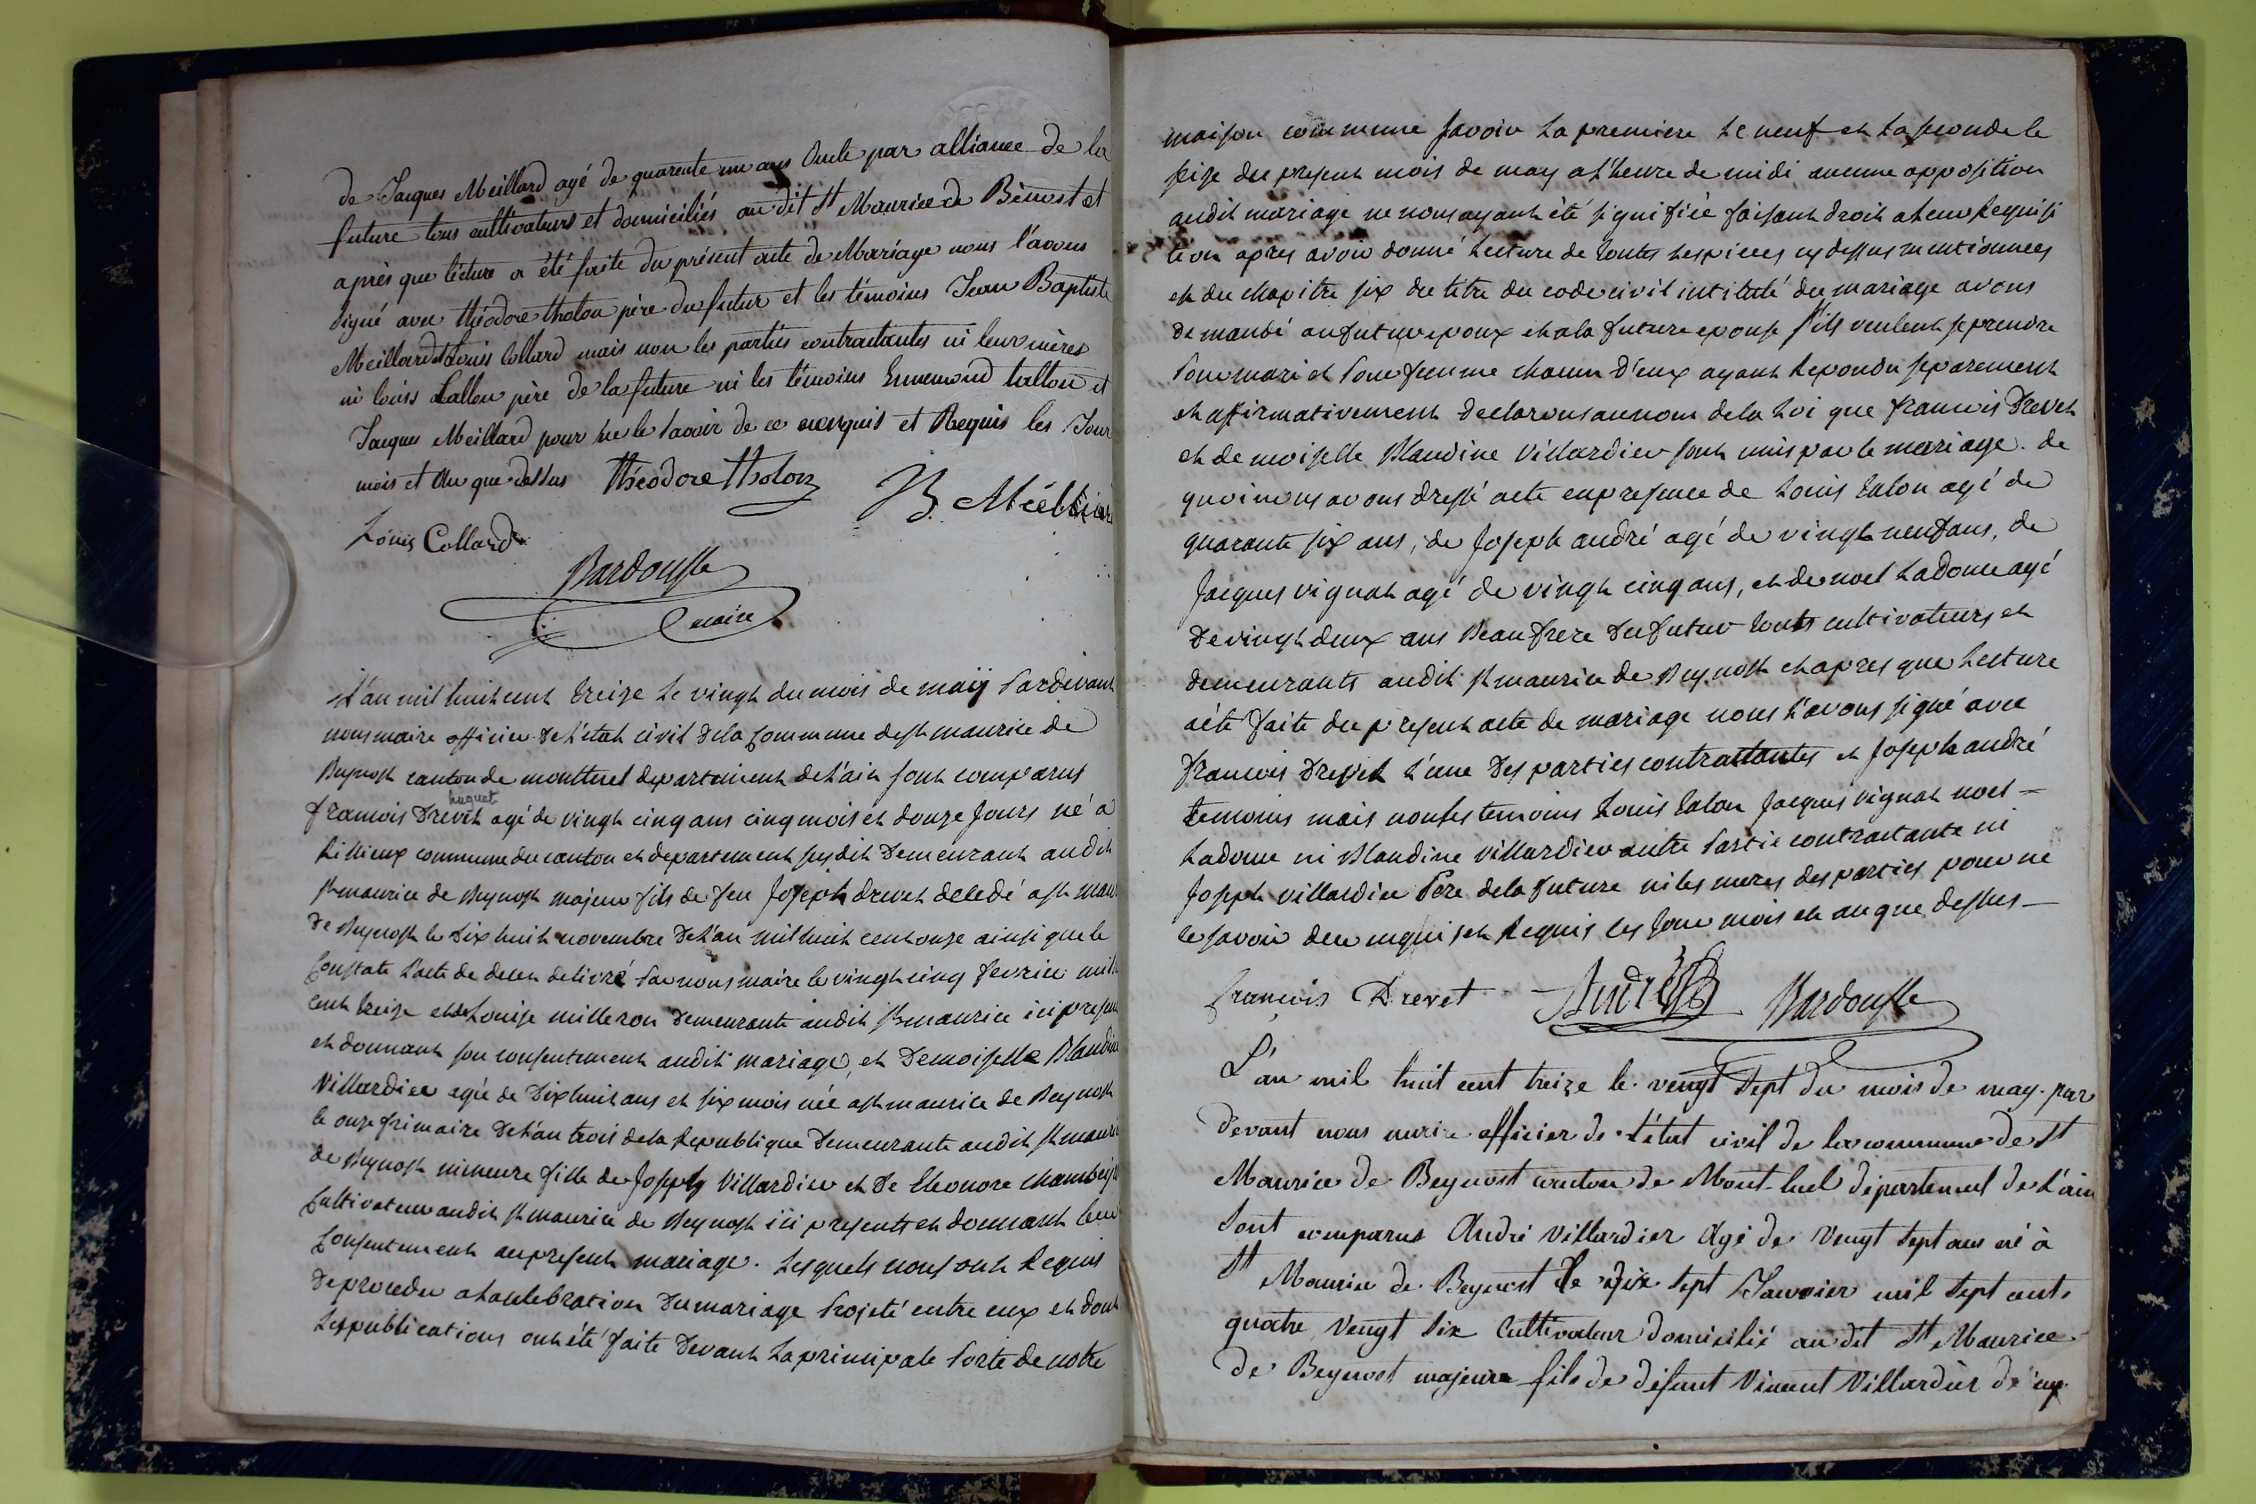 de Jacques Meillard agé de quarente un ans Oncle par alliance de la
future tous cultivateurs et domiciliés au dit St Maurice de Bėnost et
après que lecture a été faite du présent acte de Mariage nous l'avons
signé avec théodore tholon père du futur et les témoins Jean Baptiste
Meillard et Louis Collard mais non les parties contractantes ni leur mères
ni louis tallon père de la future ni les témoins Ennemond tallon et
Jacques Meillard pour ne le savoir de ce enquis et Requis les Jour
mois et An que dessus théodore tholon JB. Meillard
Louis Collard
Bardousse
maire
L'an mil huit cent treize le vingt du mois de maÿ Pardevant
nous maire officier de l'etat civil de la commune de st maurice de
Beynost canton de montluel departement de l'ain sont comparus
huguet
francois Drevet agé de vingt cinq ans cinq mois et douze Jours né a
Rillieux commune du canton et departement susdit Demeurant audit
st maurice de Beynost majeur fils de feu Joseph drevet decedé a st mau
de Beynost le dix huit novembre de l'an mil huit cent onze ainsi que le
constate l'acte de deces delivré Par nous maire le vingt cinq fevrier mil
cent treize et de Louise milleron Demeurante audit st maurice ici presen
et donnant son consentement audit mariage, et Demoiselle Blandin
Villardier agée de Dix huit ans et six mois née a st maurice de Beynost
le onze frimaire de l'an trois de la Republique Demeurante audit st mauri
de Beynost mineure fille de Joseph Villardier et De Eleonore
Cultivateur audit st maurice de Beynost ici presents et donnant leur
consentement au present mariage. Lesquels nous ont Requis
De proceder a la celebration Du mariage Projeté entre eux et dont
Les publications ont été faite Devant La principale Porte de notre
maison commune savoir La premiere Le neuf et La seconde le
seize du present mois de may a l'heure de midi aucune opposition
audit mariage ne nous ayant été signifiée faisant droit a leur Requisi
tion apres avoir donné Lecture de toutes Les pieces cy dessus mentionnées
et du chapitre six du titre du code civil intitulé du mariage avons
Demandé au futur epoux et a la future epouse s'ils veulent se prendre
Pour mari et Pour femme chacun D'eux ayant Repondu separement
et affirmativement declarons au nom de la Loi que francois Drevet
et demoiselle Blandine Villardier sont unis par le mariage. de
quoi nous avons dressé acte en presence de Louis talon agé de
quarante six ans, de Joseph andré agé de vingt neuf ans, de
Jacques vignat agé de vingt cinq ans, et de noel Ladoue agé
De vingt deux ans Beaufrere Du futur touts cultivateurs et
demeurants audit st maurice de Beynost et apres que Lecture
a été faite du present acte de mariage nous L'avons signé avec
francois Drevet L'une Des parties contractantes et Joseph andré
temoins mais non les temoins Louis talon Jacques vignat noel =
Ladoue ni Blandine villardier autre Partie contractante ni
Joseph villardier Pere de la future ni les meres des parties pour ne
le savoir de ce enquis et Requis les Jour mois et an que dessus —
francois Drevet André Bardousse
L'an mil huit cent treize le vengt sept du mois de may. par
devant nous maire officier de l'état civil de la commune de St
Maurice de Beynost canton de Mont-luel département de L'ain
Sont comparus André Villardier Agé de Vengt sept ans né à
St Maurice de Beynost le dix sept Janvier mil sept cent.
quatre Vengt Six Cultivateur domicilié au dit St Maurice
de Beynost majeure fils de défunt Vincent Villardier